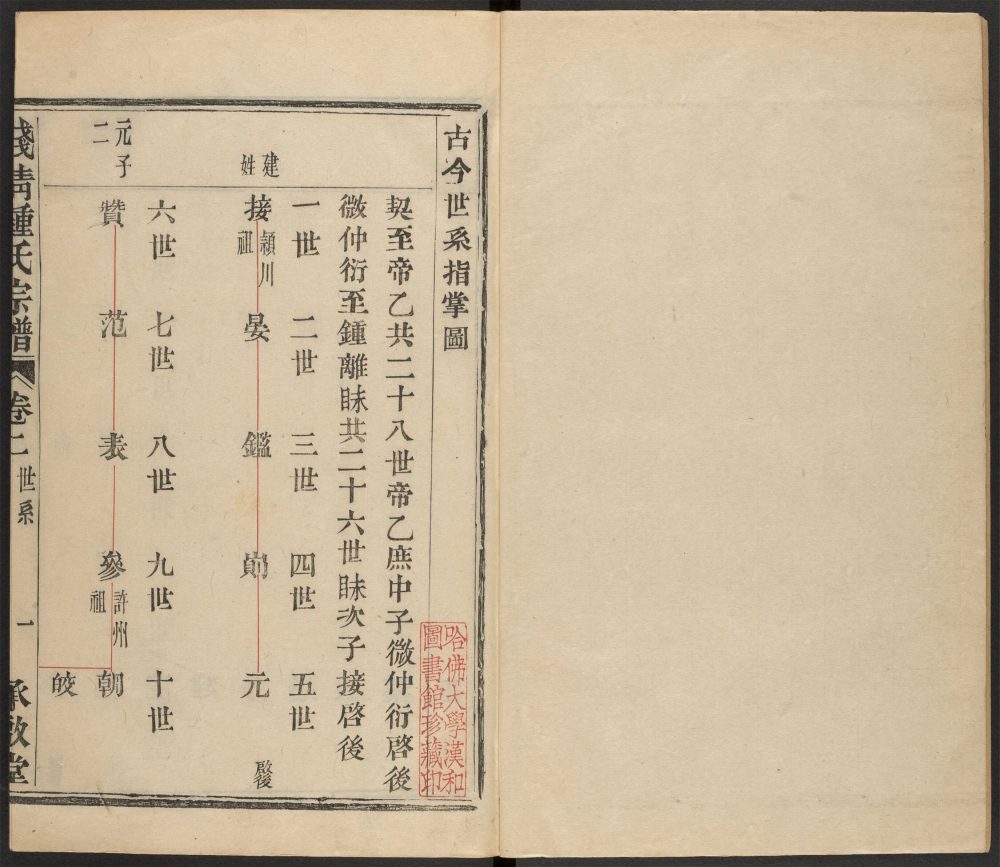 古今世系指掌圖
契至帝乙共二十八世帝乙庶中子微仲衍啓後
微仲衍至鍾離眛共二十六世眛次子接啓後
一世 二世 三世 四世 五世
建姓
接 潁川祖 晏 鑑 元 啟後
六世 七世 八世 九世 十世
元子二
贊 范 表 參 許州祖 朝
皎
錢清鍾氏宗譜 卷二 世系 一 承啟堂
哈佛大學漢和
圖書館珍藏印